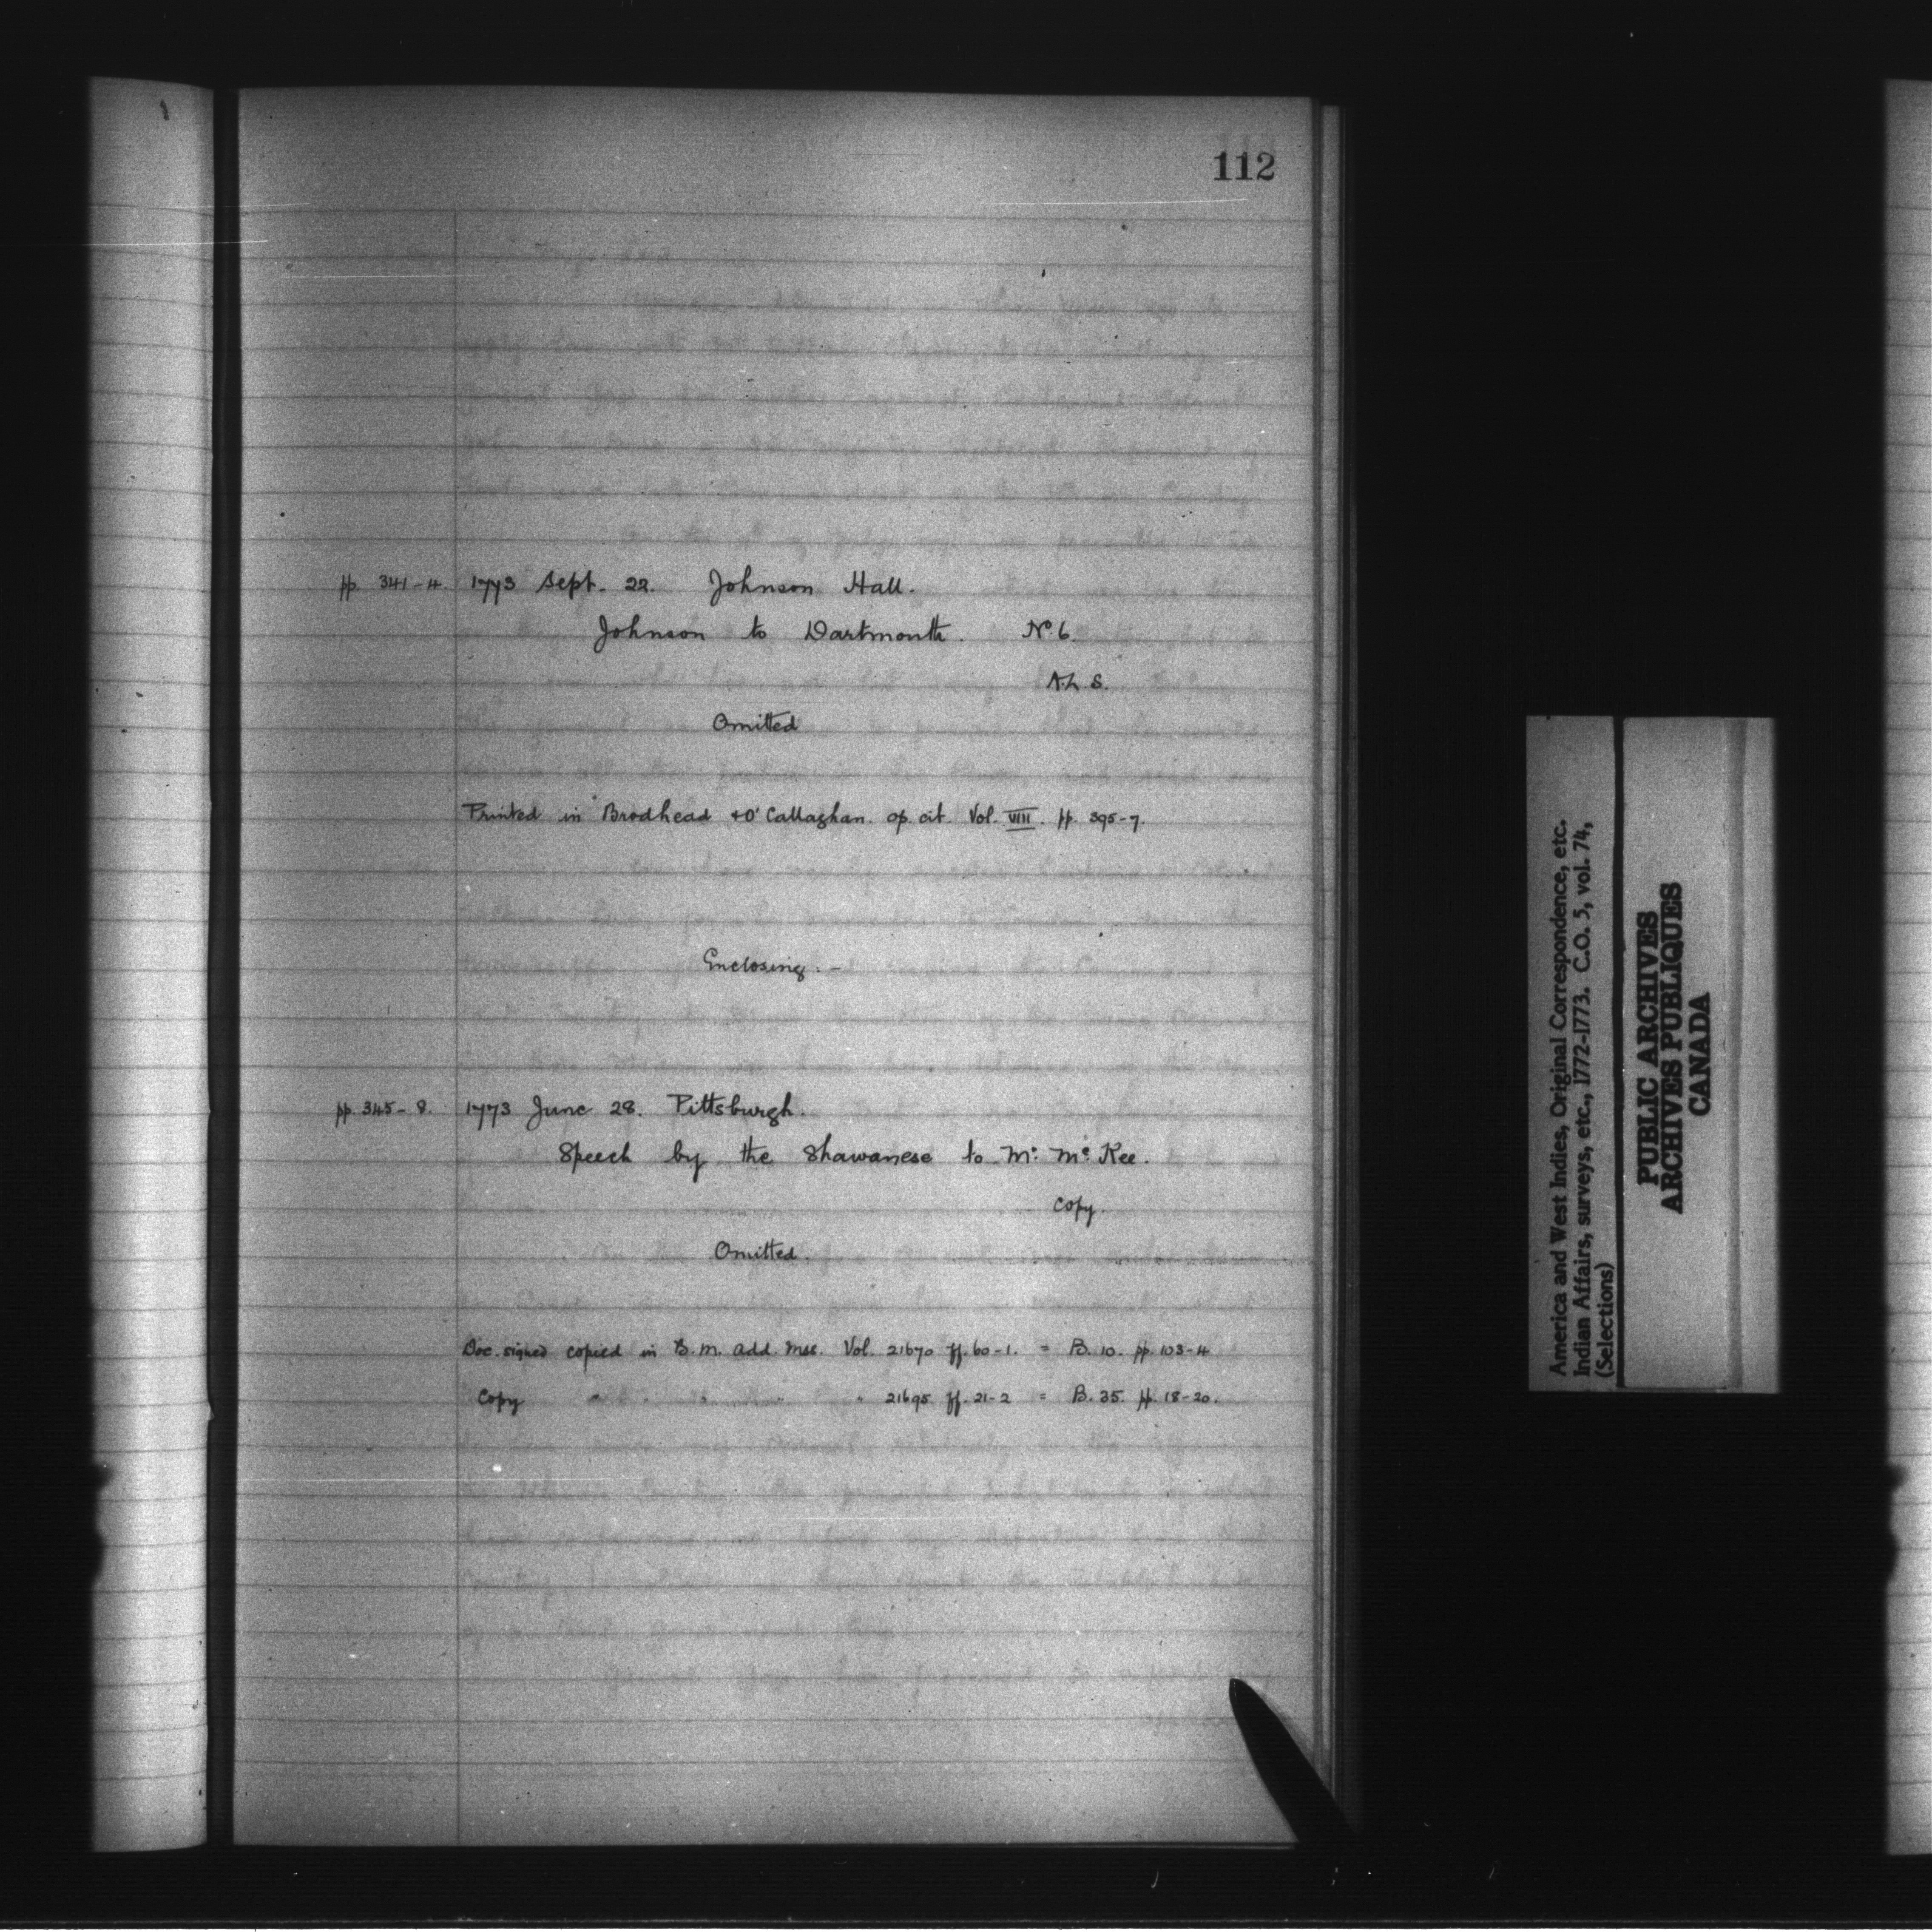 112
pp. 341-4. 1773 Sept. 22. Johnson Hall.
Johnson to Dartmouth. No. 6.
A.L.S.
Omitted
Printed in Brodhead & O'Callaghan. op. cit. Vol. VIII. pp. 395-7.
Enclosing:-
pp. 345-8. 1773 June 28. Pittsburgh.
Speech by the Shawanese to Mr. Mc Kee.
Copy.
Omitted.
Doc. signed copied in B.M. Add. Mss. Vol. 21670 ff. 60-1. = B. 10. pp. 103-4
Copy " " " " " 21695 ff. 21-2 = B. 35. pp. 18-20.
America and West Indies, Original Correspondence, etc.
Indian Affairs, surveys, etc., 1772-1773. C.O. 5, vol. 74,
(Selections)
PUBLIC ARCHIVES
ARCHIVES PUBLIQUES
CANADA